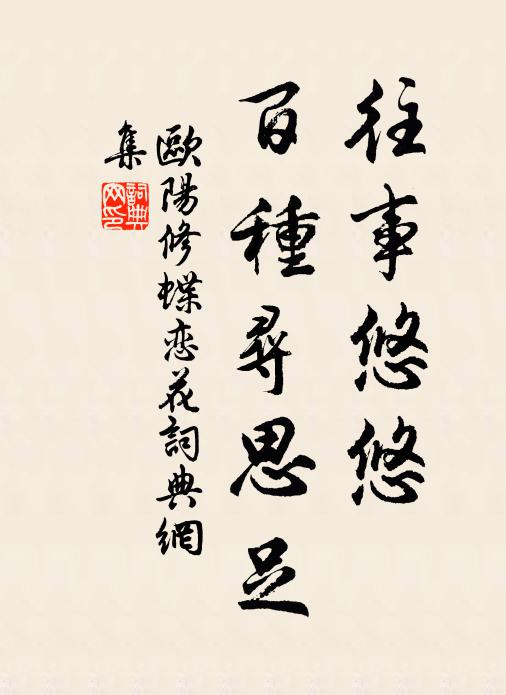 往事悠悠
百種尋思足
歐陽修蝶恋花詞典網
集
詞典
网印